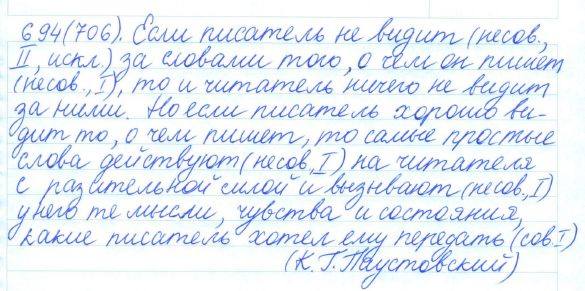 694(706). Если писатель не видит (несов.,
II, искл.) за словами того, о чем он пишет
(несов., I), то и читатель ничего не видит
за ними. Но если писатель хорошо ви-
дит то, о чем пишет, то самые простые
слова действуют (несов, I) на читателя
с разительной силой и вызывают (несов., I)
у него те мысли, чувства и состояния,
какие писатель хотел ему передать (сов. I)
(К. Г. Паустовский)